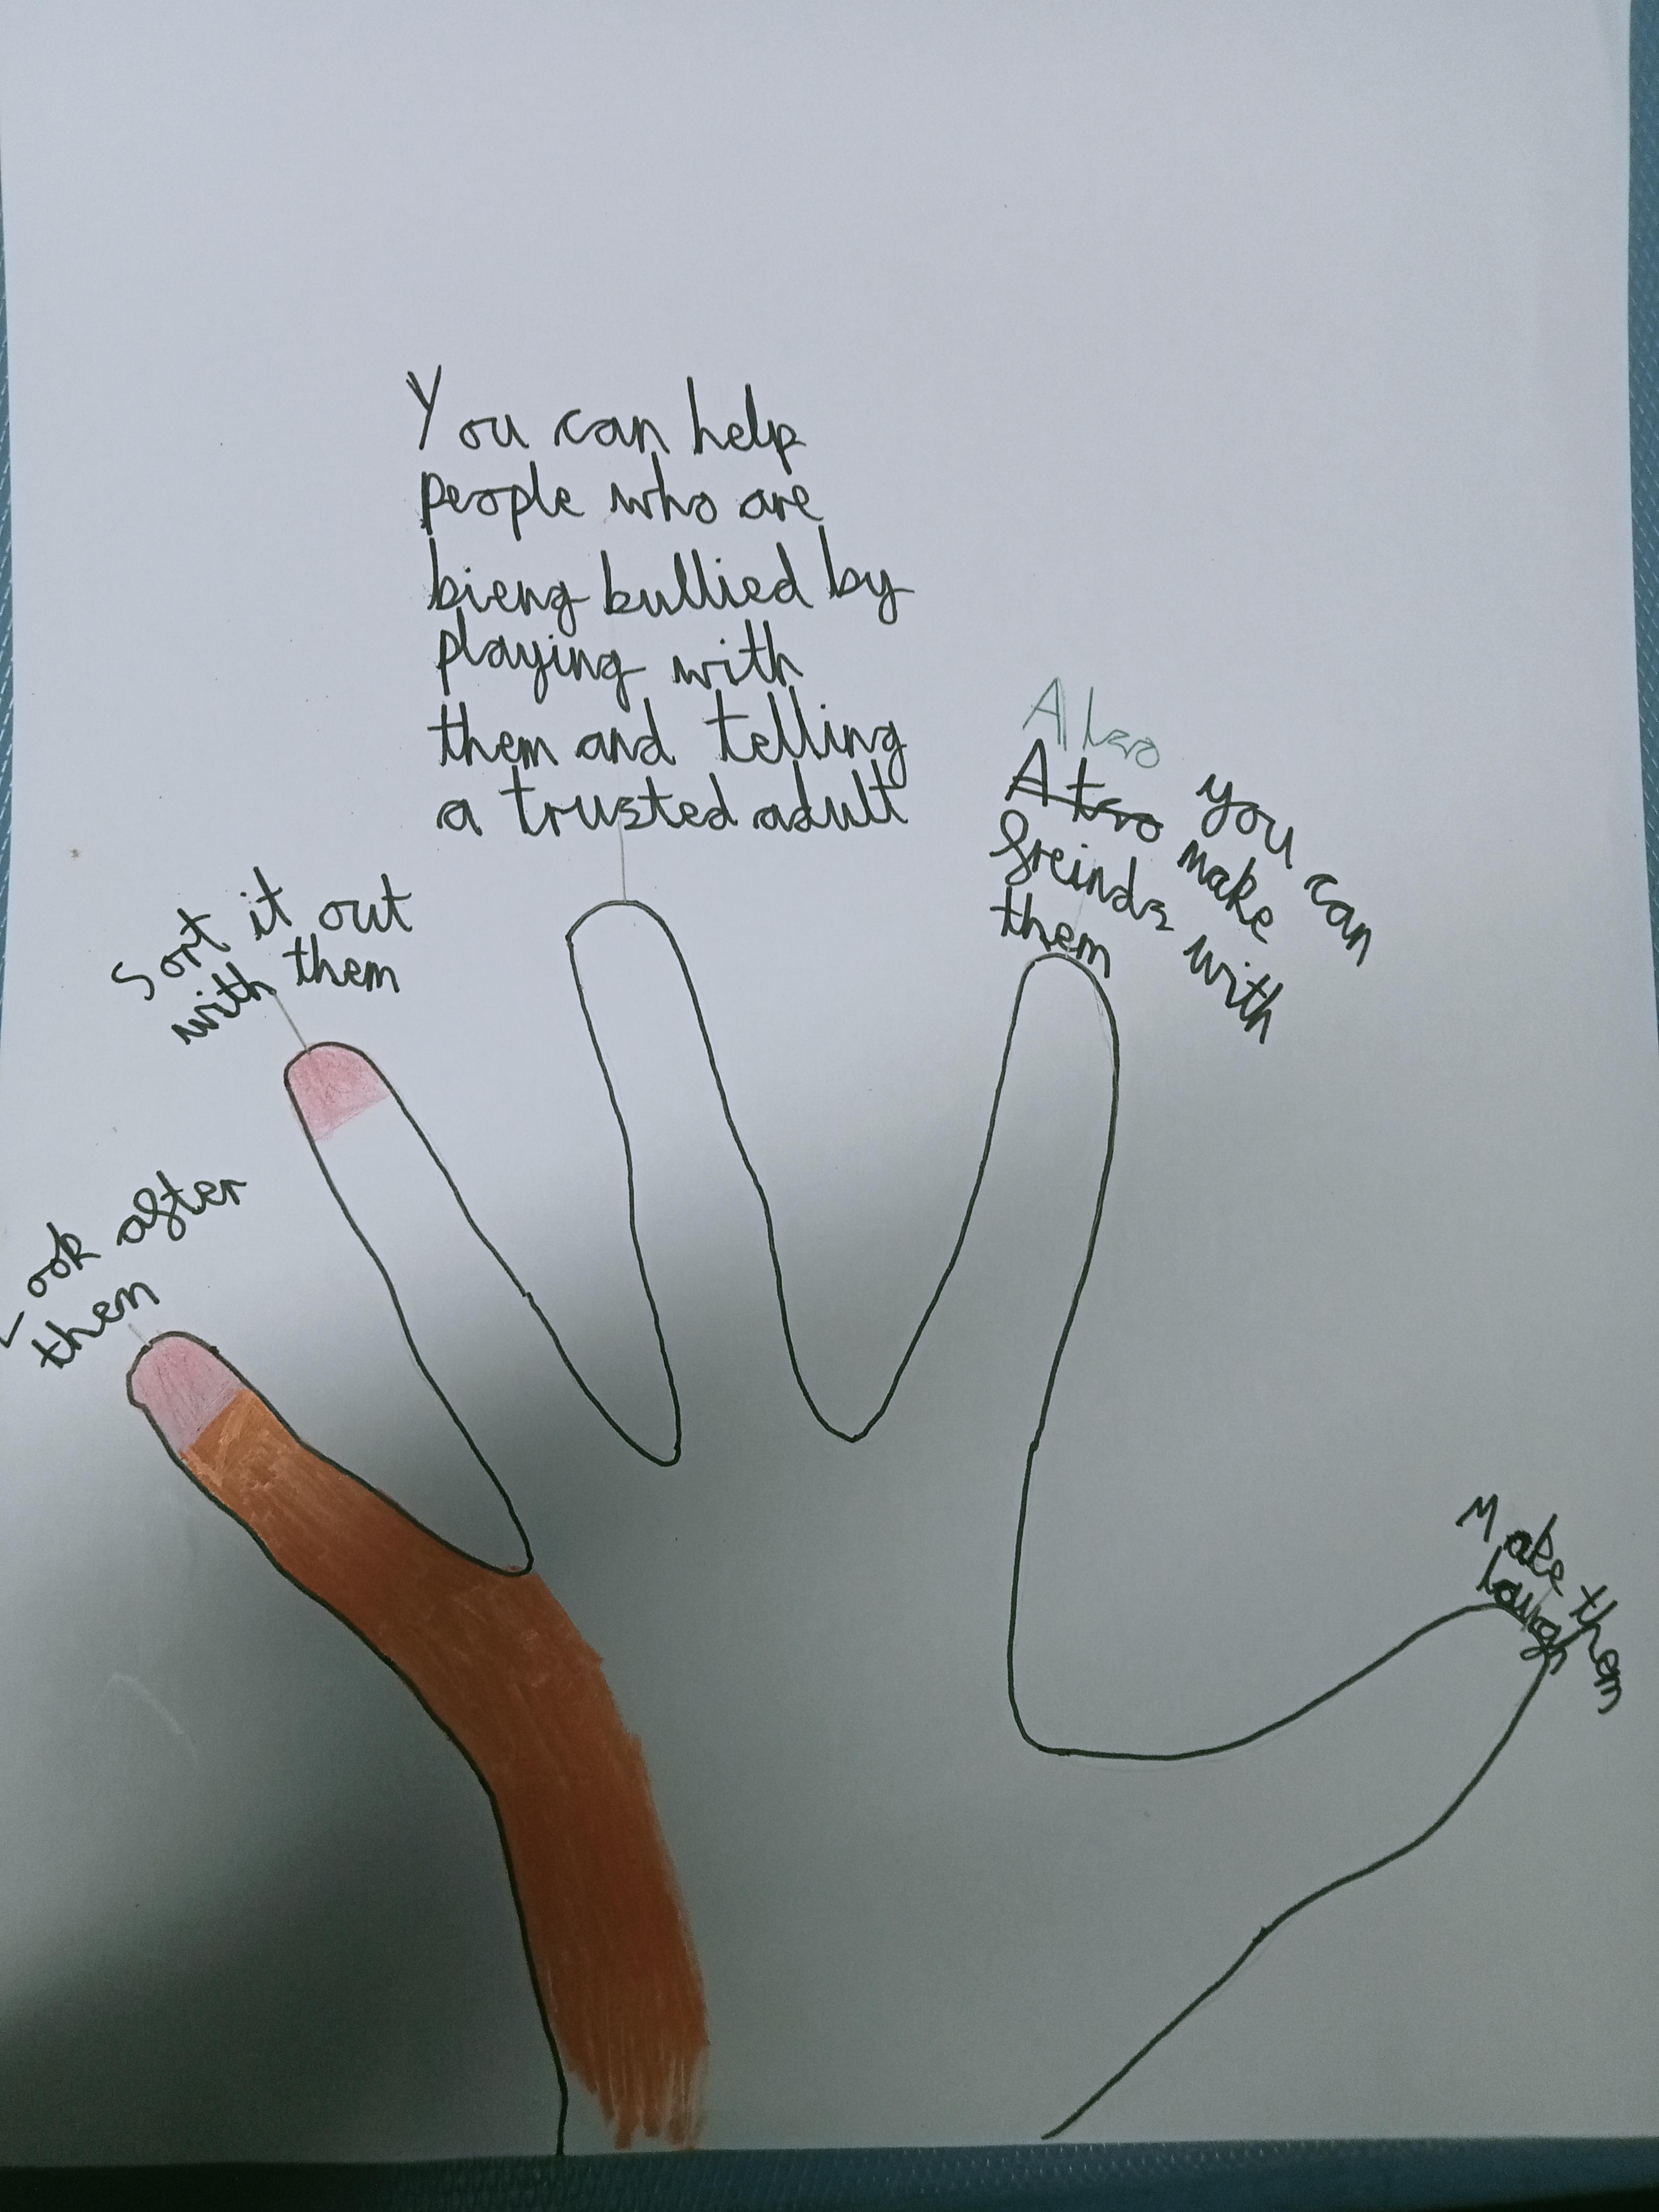 You can help
people who are
bieng bullied by
playing with
them and telling
a trusted adult
Sort it out
with them
Look after
them
Also
Atso you can
make
freinds with
them
Make them
laugh